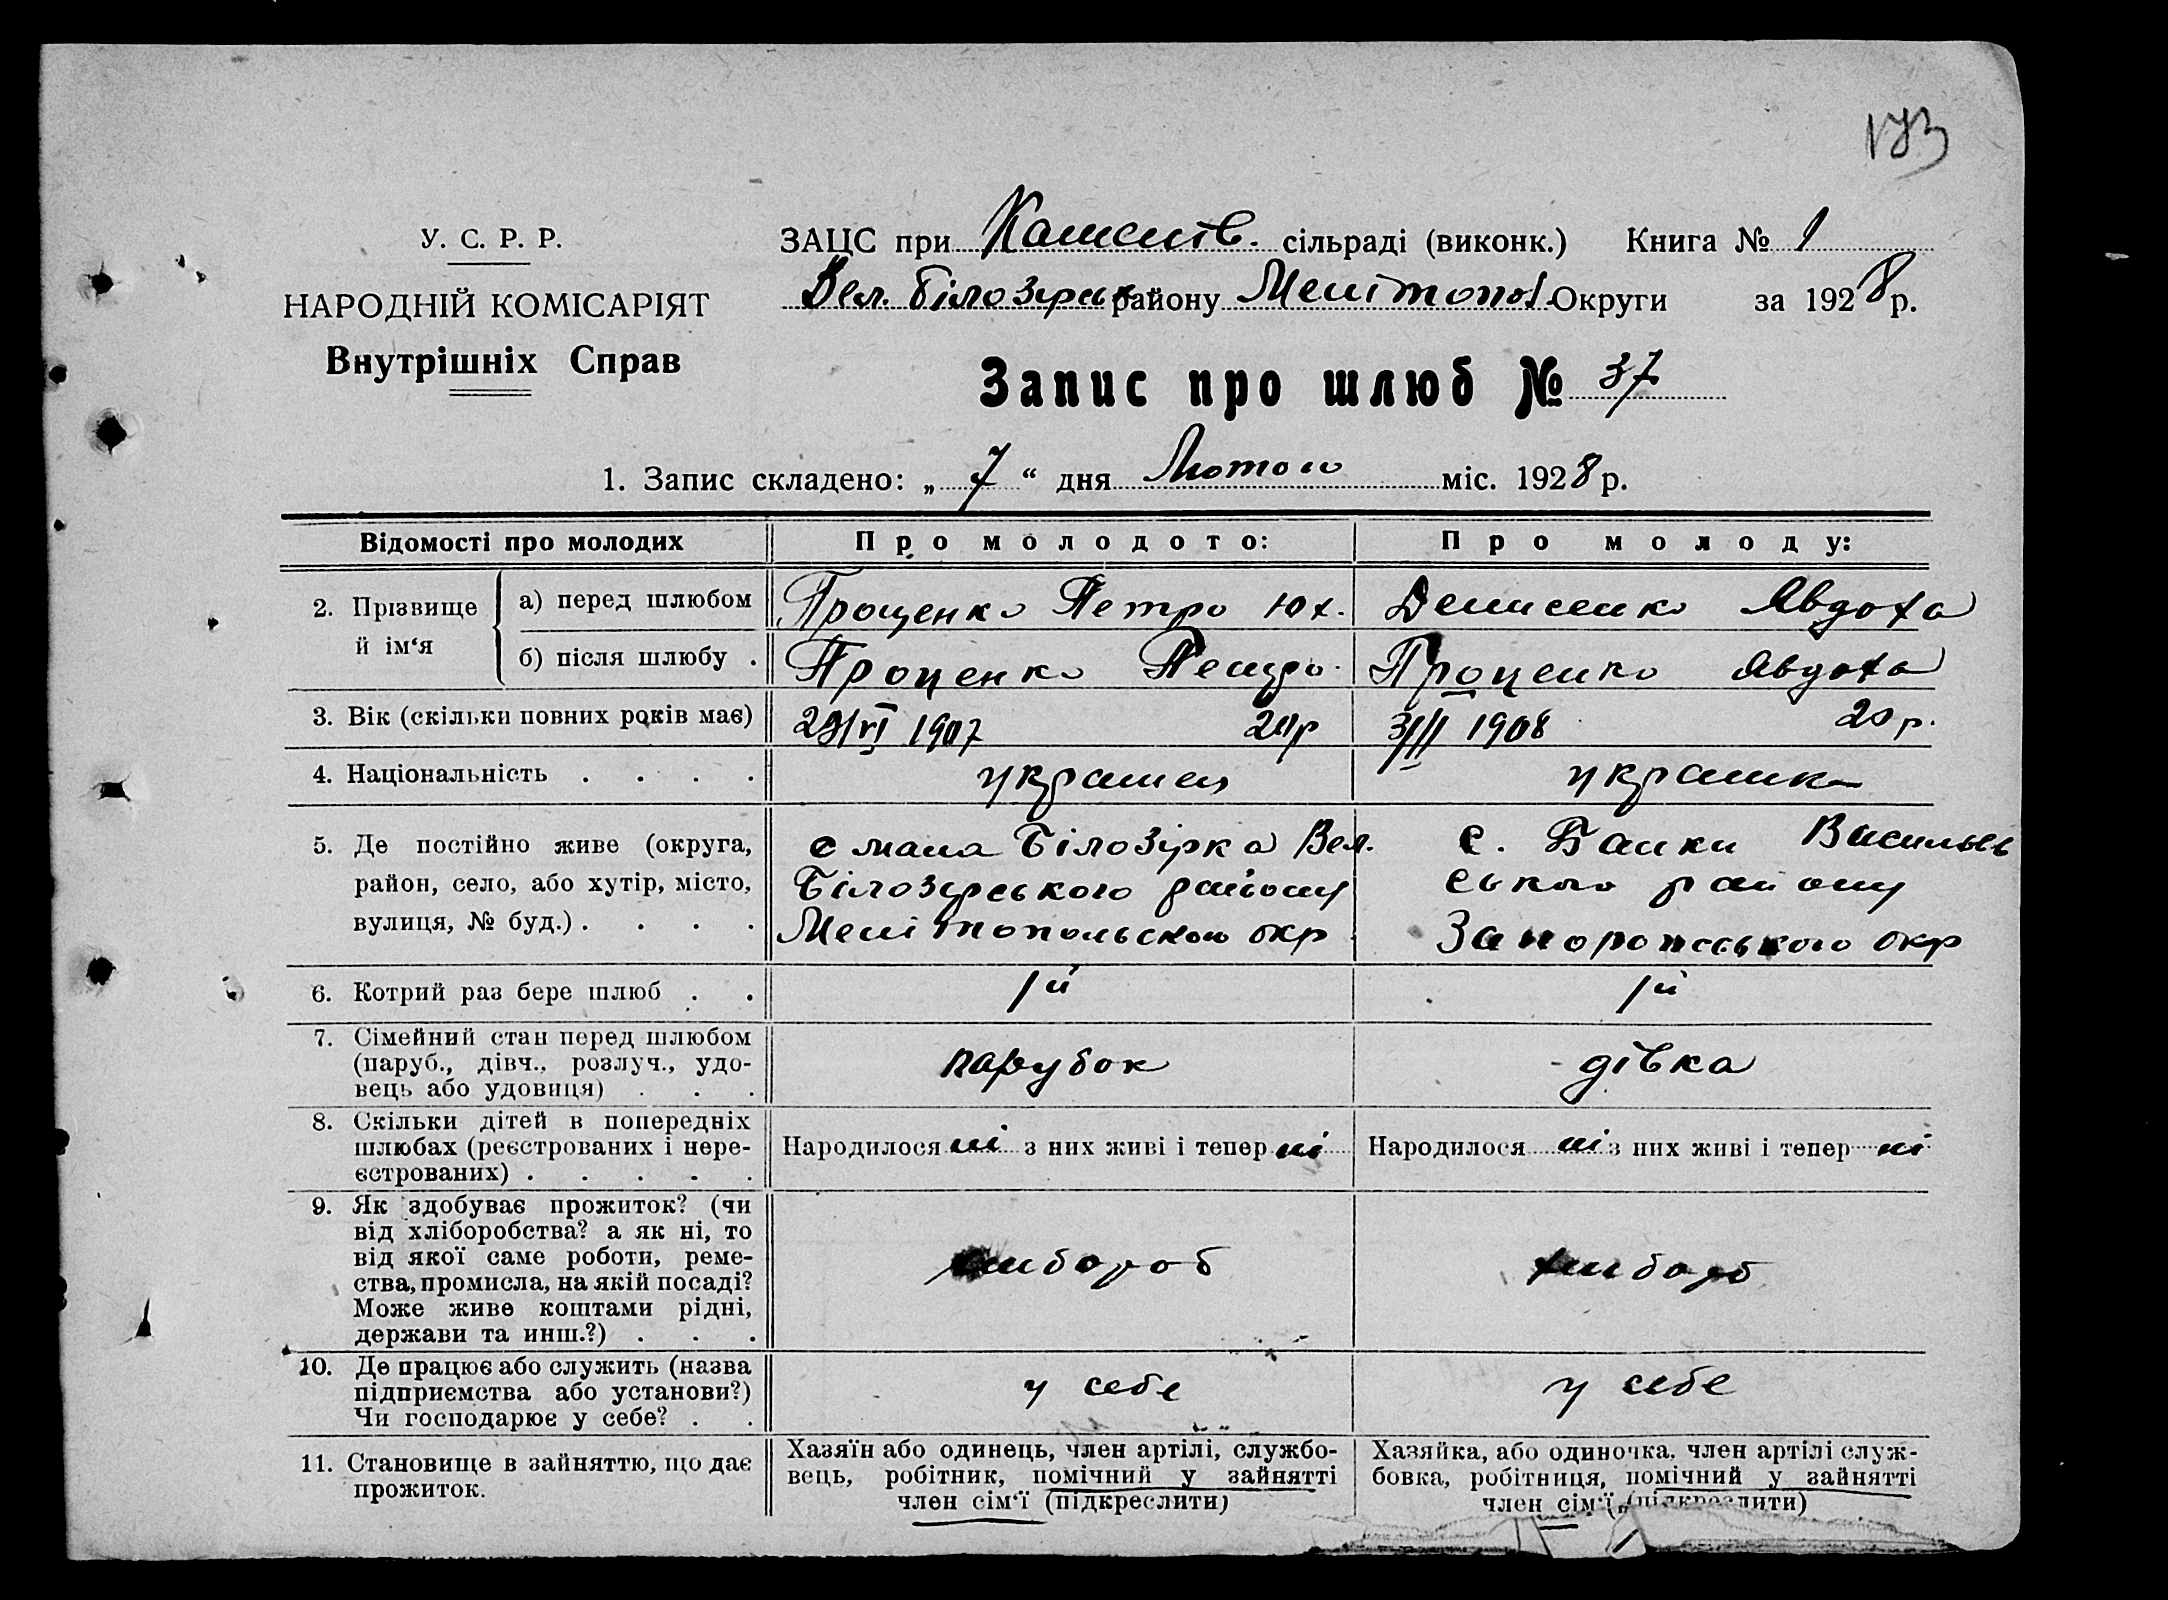 173
У. С. Р. Р.
НАРОДНІЙ КОМІСАРІЯТ
Внутрішніх Справ
ЗАЦС при сільраді (виконк.) Книга № 1
Вел. Білозірськ району Мелітопол. Округи за 1928 р.
Запис про шлюб № 37
1. Запис складено: „ 7 “ дня Лютого міс. 1928 р.
Відомості про молодих Про молодого: Про молоду:
2. Прізвище й ім‘я а) перед шлюбом Проценко Петро Юх. Денисенко Явдоха
б) після шлюбу . Проценко Петро Проценко Явдоха
3. Вік (скільки повних років має) 29/VI 1907 20 р 3/II 1908 20 р.
4. Національність . . . . украинец украинка
5. Де постійно живе (округа, с мала Білозірка Вел. с. Балки Васильєв
район, село, або хутір, місто, Білозірського району ського району
вулиця, № буд.) . . . . Мелітопольского окр Запорожського окр
6. Котрий раз бере шлюб . . 1й 1й
7. Сімейний стан перед шлюбом
(паруб., дівч., розлуч., удо- парубок дівка
вець або удовиця) . . .
8. Скільки дітей в попередніх
шлюбах (реєстрованих і нере- Народилося ні з них живі і тепер ні Народилося ні з них живі і тепер ні
єстрованих) . . . . .
9. Як здобуває прожиток? (чи
від хліборобства? а як ні, то
від якої саме роботи, реме- хлибороб хлибороб
ства, промисла, на якій посаді?
Може живе коштами рідні,
держави та инш.?) . . .
10. Де працює або служить (назва
підприємства або установи?) у себе у себе
Чи господарює у себе? . .
11. Становище в зайняттю, що дає прожиток.
Хазяїн або одинець, член артілі, службо-
вець, робітник, помічний у зайнятті
член сім‘ї (підкреслити)
Хазяйка, або одиночка, член артілі служ-
бовка, робітниця, помічний у зайнятті
член сім‘ї (підкреслити)